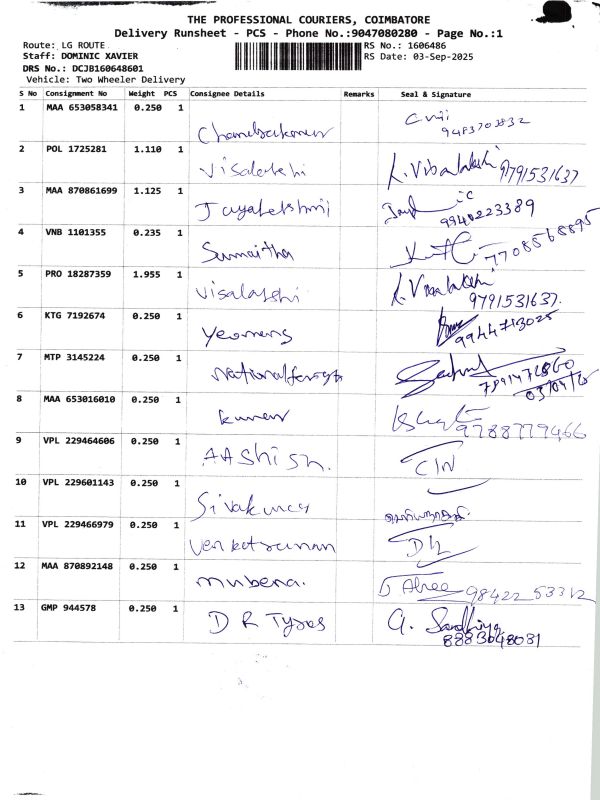 THE PROFESSIONAL COURIERS, COIMBATORE
Delivery Runsheet - PCS - Phone No.:9047080280 - Page No.:1
Route: LG ROUTE
RS No.: 1606486
Staff: DOMINIC XAVIER
RS Date: 03-Sep-2025
DRS No.: DCJB160648601
Vehicle: Two Wheeler Delivery
S No Consignment No Weight PCS Consignee Details Remarks Seal & Signature
1 MAA 653058341 0.250 1
2 POL 1725281 1.110 1 Visalatchi K. Visalatchi 9791531637
3 MAA 870861699 1.125 1 Jayalekshmi 9940223389
4 VNB 1101355 0.235 1 Sumaitha 7708568895
5 PRO 18287359 1.955 1 Visalatchi 9791531637.
6 KTG 7192674 0.250 1 Yeomens 9944713025
7 MTP 3145224 0.250 1
8 MAA 653016010 0.250 1 Kumar 9788779466
9 VPL 229464606 0.250 1 AAShish. CIN
10 VPL 229601143 0.250 1 Sivakumar
11 VPL 229466979 0.250 1 Venkatraman
12 MAA 870892148 0.250 1 mubena. 98422 53312
13 GMP 944578 0.250 1 D R Tyres G. Sandhiya
8883048031